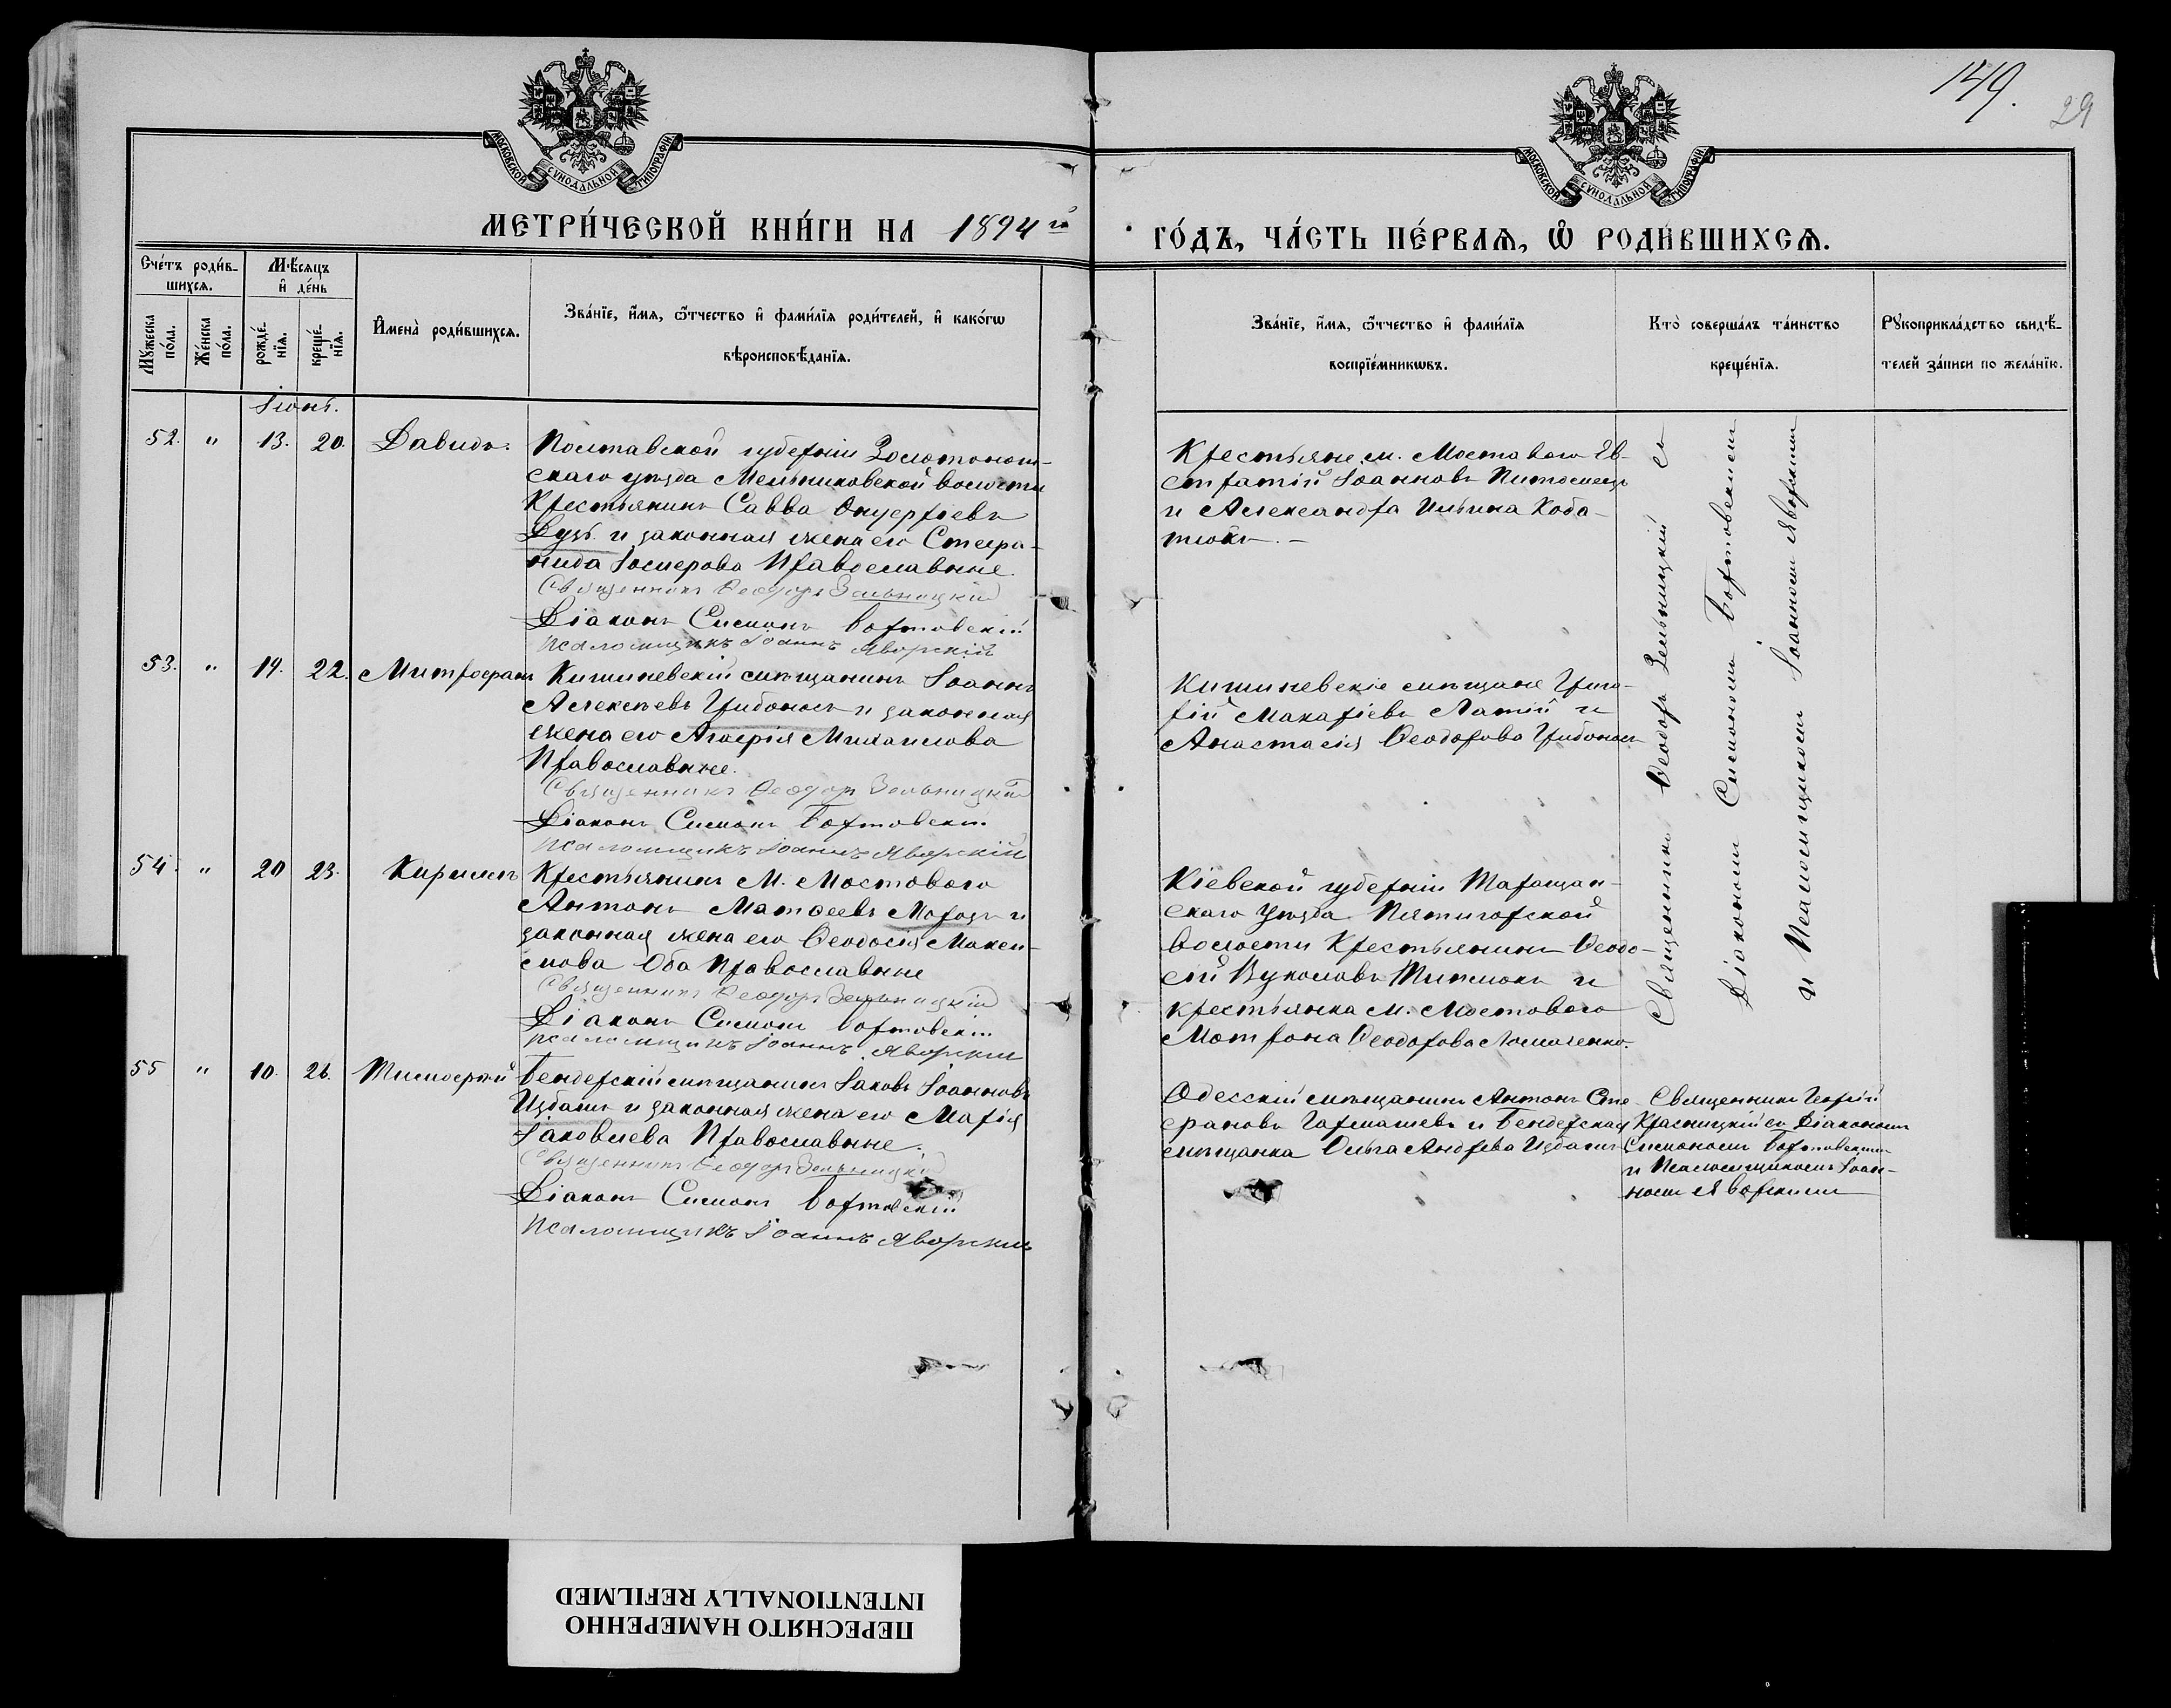 149.
29
МОСКОВСКОЙ СУНОДАЛЬНОЙ ТИПОГРАФІИ
МОСКОВСКОЙ СУНОДАЛЬНОЙ ТИПОГРАФІИ
МЕТРИ́ЧЕСКОЙ КНИ́ГИ НА 1894 й
ГО́ДЪ, ЧА́СТЬ ПЕ́РВАѦ, Ѽ РОДИ́ВШИХСѦ.
Сче́тъ роди́в-
шихсѧ.
Мꙋ́жеска по́ла.
Же́нска по́ла.
Мѣ́сѧцъ
и҆ де́нь
рожде́-
нїѧ.
креще́-
нїѧ.
И҆мена̀ роди́вшихсѧ.
Зва́нїе, и҆́мѧ, ѻ҆́тчество и҆ фами́лїѧ роди́телей, и҆ како́гѡ
вѣроисповѣ́данїѧ.
Зва́нїе, и҆́мѧ, ѻ҆́тчество и҆ фами́лїѧ
воспрїе́мникѡвъ.
Кто̀ соверша́лъ та́инство
креще́нїѧ.
Рꙋкоприкла́дство свидѣ́-
телей за́писи по жела́нїю.
Іюнь.
52. " 13. 20. Давидъ.
Полтавской губерніи Золотонош-
скаго уѣзда Мельниковской волости
Крестьянинъ Савва Онуфріевъ
и законная жена его Стефа-
нида Іосифова Православные
Священникъ Ѳеодоръ Зельницкій
Діаконъ Симонъ Бортовскій
Псаломщикъ Іоаннъ Яворскій
Крестьяне м. Мостоваго Ев-
стратій Іоанновъ
и Александра Ильина Коба-
тюкъ. –
53. " 19. 22. Митрофанъ
Кишиневскій мѣщанинъ Іоаннъ
Алексѣевъ и законная
жена его Агафія Михаилова
Православные.
Священникъ Ѳеодоръ Зельницкій
Діаконъ Симонъ Бортовскій
Псаломщикъ Іоаннъ Яворскій
Кишиневскіе мѣщане Григо-
рій Макаріевъ и
Анастасія Ѳеодорова
54. " 20 23. Кириллъ
Крестьянинъ М. Мостоваго
Антонъ Матѳеевъ Морозъ и
законная жена его Ѳеодосія Макси-
мова Оба Православные
Священникъ Ѳеодоръ Зельницкій
Діаконъ Симонъ Бортовскій
Псаломщикъ Іоаннъ Яворскій
Кіевской губерніи Таращан-
скаго уѣзда Пятигорской
волости Крестьянинъ Ѳеодо-
сій Вуколовъ и
крестьянка м. Мостоваго
Мотрона Ѳеодорова Ломаченко.
55 " 10. 26. Тимоѳей
Бендерскій мѣщанинъ Іаковъ Іоанновъ
Избашъ и законная жена его Марія
Іаковлева Православные.
Священникъ Ѳеодоръ Зельницкій
Діаконъ Симонъ Бортовскій
Псаломщикъ Іоаннъ Яворскій
Одесскій мѣщанинъ Антонъ Сте-
фановъ Гармашевъ и Бендерская
мѣщанка Ольга Андреева Избашъ
Священникъ Ѳеодоръ Зельницкій съ
Діакономъ Симономъ Бортовскимъ
и Псаломщикомъ Іоанномъ Яворскимъ
Священникъ Георгій
Красницкій съ Діакономъ
Симономъ Бортовскимъ
и Псаломщикомъ Іоан-
номъ Яворскимъ
ПЕРЕСНЯТО НАМЕРЕННО
INTENTIONALLY REFILMED